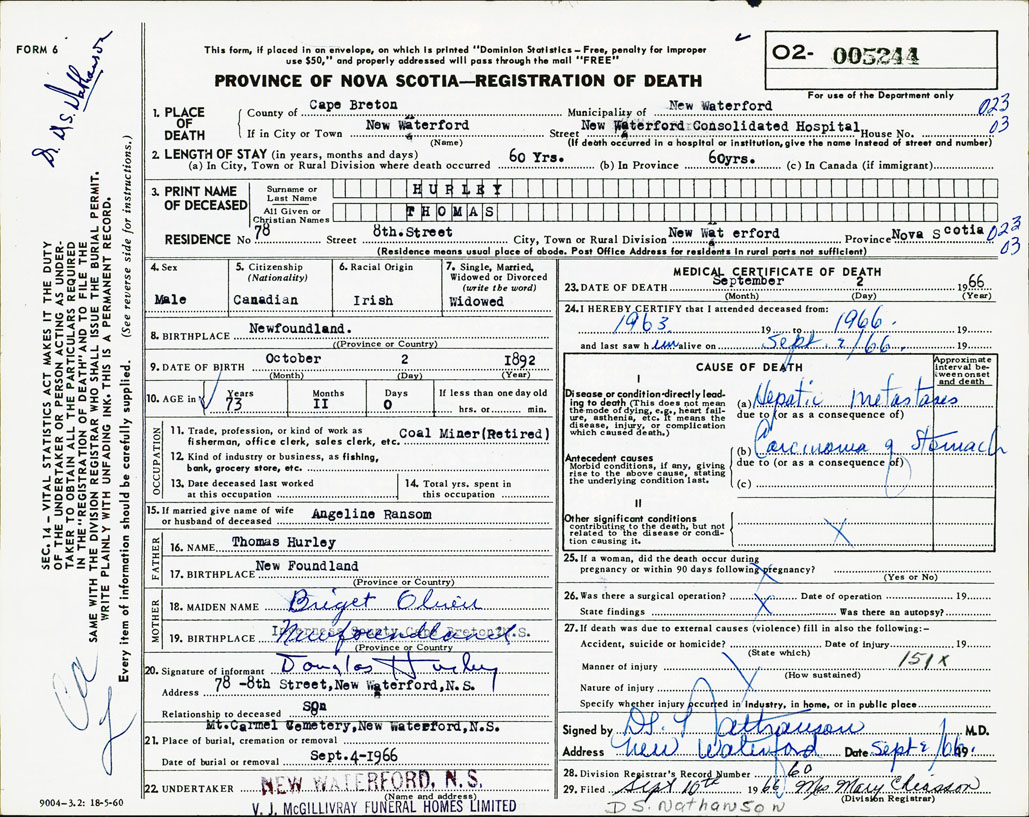 FORM 6
Dr. D.S. Nathanson
SEC. 14 – VITAL STATISTICS ACT MAKES IT THE DUTY
OF THE UNDERTAKER OR PERSON ACTING AS UNDER-
TAKER TO OBTAIN ALL THE PARTICULARS REQUIRED
IN THE "REGISTRATION OF DEATH" AND TO FILE THE
SAME WITH THE DIVISION REGISTRAR WHO SHALL ISSUE THE BURIAL PERMIT.
WRITE PLAINLY WITH UNFADING INK. THIS IS A PERMANENT RECORD.
Every item of information should be carefully supplied. (See reverse side for instructions.)
This form, if placed in an envelope, on which is printed "Dominion Statistics – Free, penalty for improper
use $50," and properly addressed will pass through the mail "FREE"
PROVINCE OF NOVA SCOTIA—REGISTRATION OF DEATH
02- 005244
For use of the Department only
1. PLACE OF DEATH
County of Cape Breton Municipality of New Waterford 023
If in City or Town New Waterford Street New Waterford Consolidated Hospital House No. 03
(Name) (If death occurred in a hospital or institution, give the name instead of street and number)
2. LENGTH OF STAY (in years, months and days)
(a) In City, Town or Rural Division where death occurred 60 Yrs. (b) In Province 60yrs. (c) In Canada (if immigrant)
3. PRINT NAME OF DECEASED
Surname or Last Name HURLEY
All Given or Christian Names THOMAS
RESIDENCE No 78 Street 8th.Street City, Town or Rural Division New Wat erford Province Nova Scotia 023
(Residence means usual place of abode. Post Office Address for residents in rural parts not sufficient) 03
4. Sex
Male
5. Citizenship (Nationality)
Canadian
6. Racial Origin
Irish
7. Single, Married, Widowed or Divorced (write the word)
Widowed
8. BIRTHPLACE Newfoundland.
((Province or Country)
9. DATE OF BIRTH October 2 1892
(Month) (Day) (Year)
10. AGE in Years 73 Months II Days 0 If less than one day old
hrs. or min.
OCCUPATION
11. Trade, profession, or kind of work as
fisherman, office clerk, sales clerk, etc. Coal Miner(Retired)
12. Kind of industry or business, as fishing,
bank, grocery store, etc.
13. Date deceased last worked
at this occupation
14. Total yrs. spent in
this occupation
15. If married give name of wife
or husband of deceased Angeline Ransom
FATHER
16. NAME Thomas Hurley
17. BIRTHPLACE New Foundland
(Province or Country)
MOTHER
18. MAIDEN NAME Briget
19. BIRTHPLACE Newfoundland
(Province or Country)
20. Signature of informant Douglas Hurley
Address 78 -8th Street,New Waterford,N.S.
Relationship to deceased son
Mt.Carmel Cemetery,New Waterford,N.S.
21. Place of burial, cremation or removal
Date of burial or removal Sept.4-1966
22. UNDERTAKER NEW WATERFORD, N. S.
(Name and address)
V. J. McGILLIVRAY FUNERAL HOMES LIMITED
9004-3.2: 18-5-60
MEDICAL CERTIFICATE OF DEATH
23. DATE OF DEATH September 2 1966
(Month) (Day) (Year)
24. I HEREBY CERTIFY that I attended deceased from:
1963 19 to 1966 19
and last saw him alive on Sept. 2/66. 19
CAUSE OF DEATH
Approximate interval between onset and death
I
Disease or condition directly lead-
ing to death (This does not mean
the mode of dying, e.g., heart fail-
ure, asthenia, etc. It means the
disease, injury, or complication
which caused death.)
(a) Hepatic metastases
due to (or as a consequence of)
Antecedent causes
Morbid conditions, if any, giving
rise to the above cause, stating
the underlying condition last.
(b) Carcinoma of Stomach
due to (or as a consequence of)
(c)
II
Other significant conditions
contributing to the death, but not
related to the disease or condi-
tion causing it.
X
25. If a woman, did the death occur during
pregnancy or within 90 days following pregnancy?
(Yes or No)
26. Was there a surgical operation? X Date of operation 19
State findings Was there an autopsy?
27. If death was due to external causes (violence) fill in also the following:-
Accident, suicide or homicide? Date of injury 19
(State which) 151X
Manner of injury
(How sustained)
Nature of injury
Specify whether injury occurred in Industry, in home, or in public place
Signed by D.S. Nathanson M.D.
Address New Waterford Date Sept 2/66 19
28. Division Registrar's Record Number 60
29. Filed Sept 10th 1966 Mrs Mary Chiasson
(Division Registrar)
DS. Nathanson